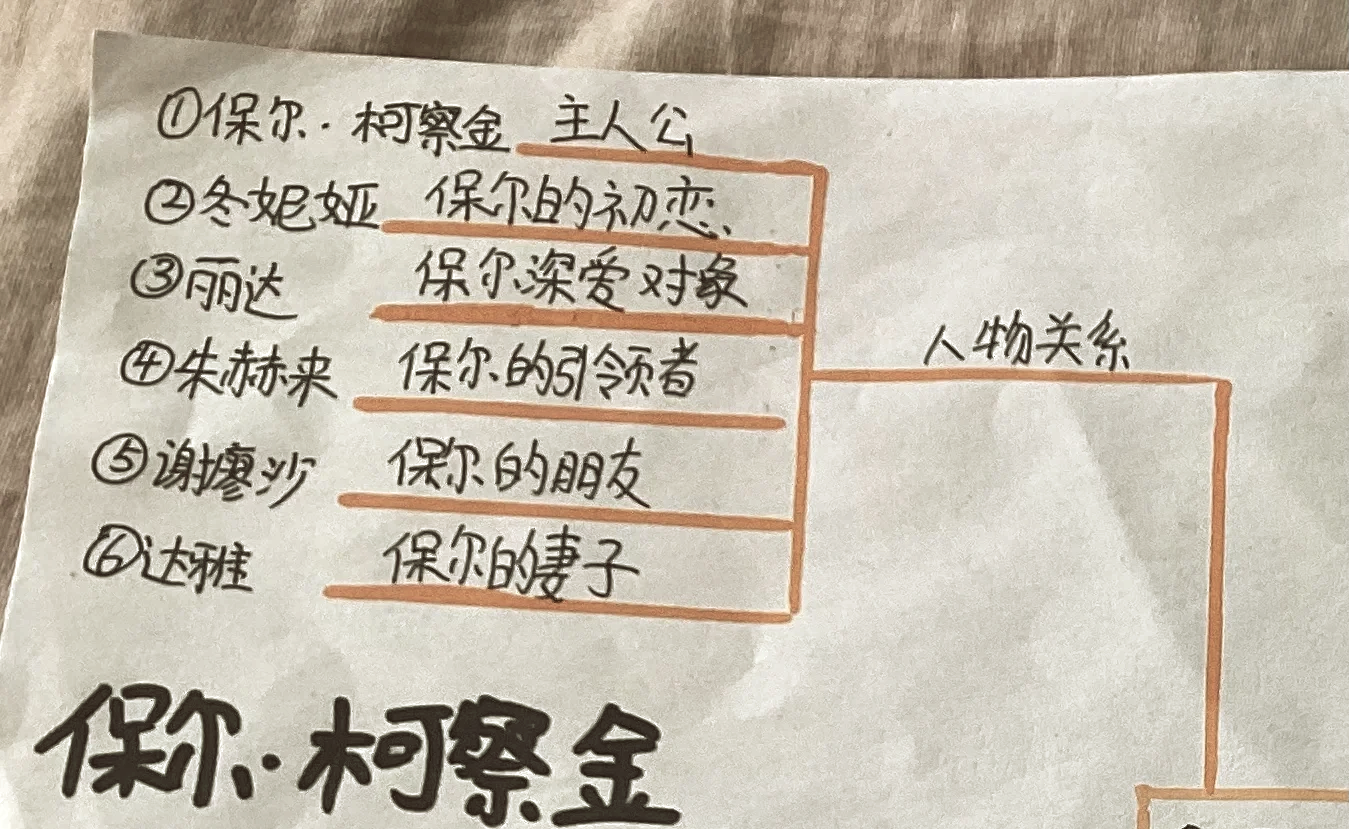 ①保尔·柯察金 主人公
②冬妮娅 保尔的初恋
③丽达 保尔深爱对象
④朱赫来 保尔的引领者
⑤谢廖沙 保尔的朋友
⑥达雅 保尔的妻子
人物关系
保尔·柯察金